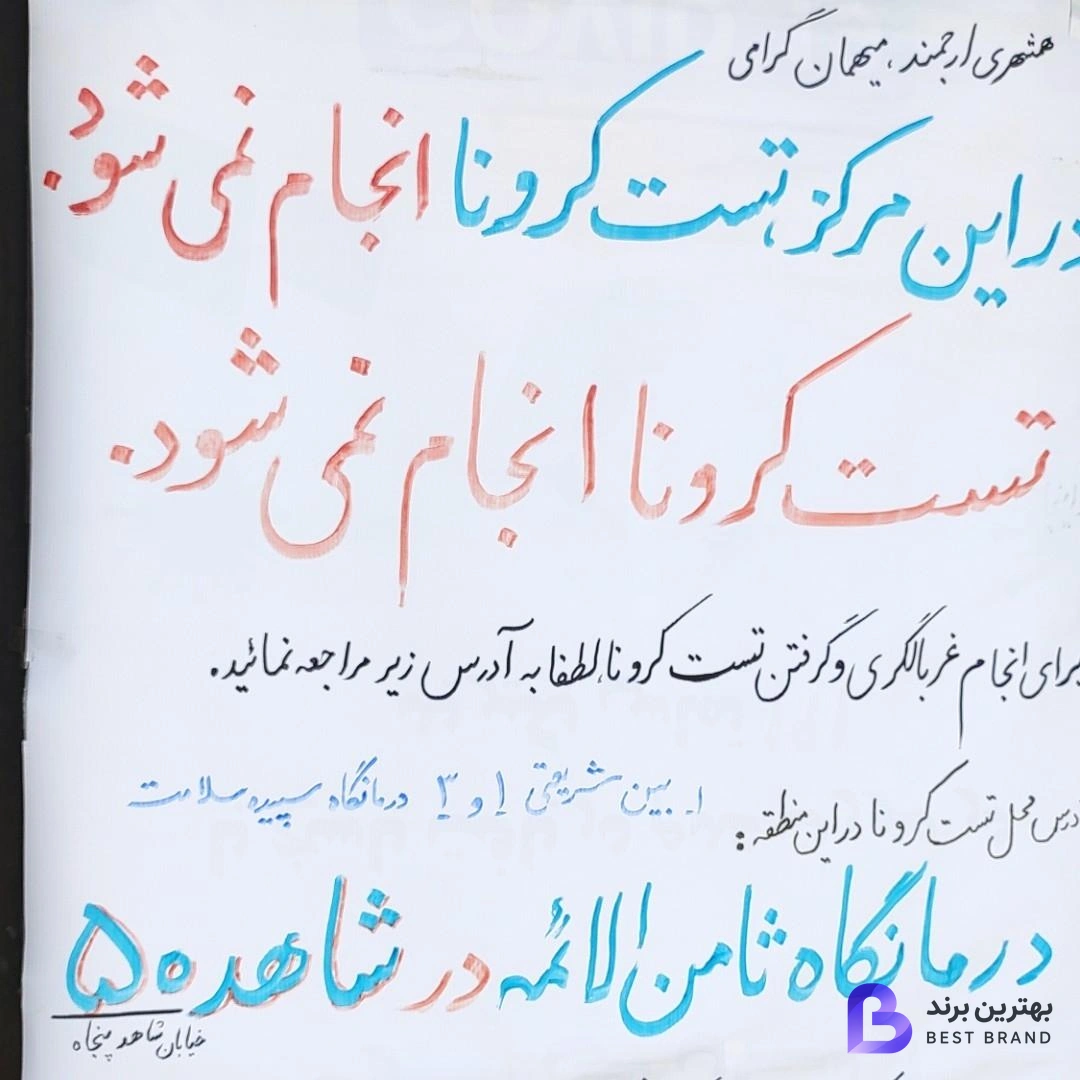 همشهری ارجمند، میهمان گرامی
در این مرکز، تست کرونا انجام نمی شود.
تست کرونا انجام نمی شود.
برای انجام غربالگری و گرفتن تست کرونا، لطفا به آدرس زیر مراجعه نمائید.
۱ـ بین شریعتی ۱ و ۳ درمانگاه سپیده سلامت
آدرس محل تست کرونا در این منطقه :
درمانگاه ثامن الائمه در شاهد ۵۰
خیابان شاهد پنجاه
بهترین برند
BEST BRAND